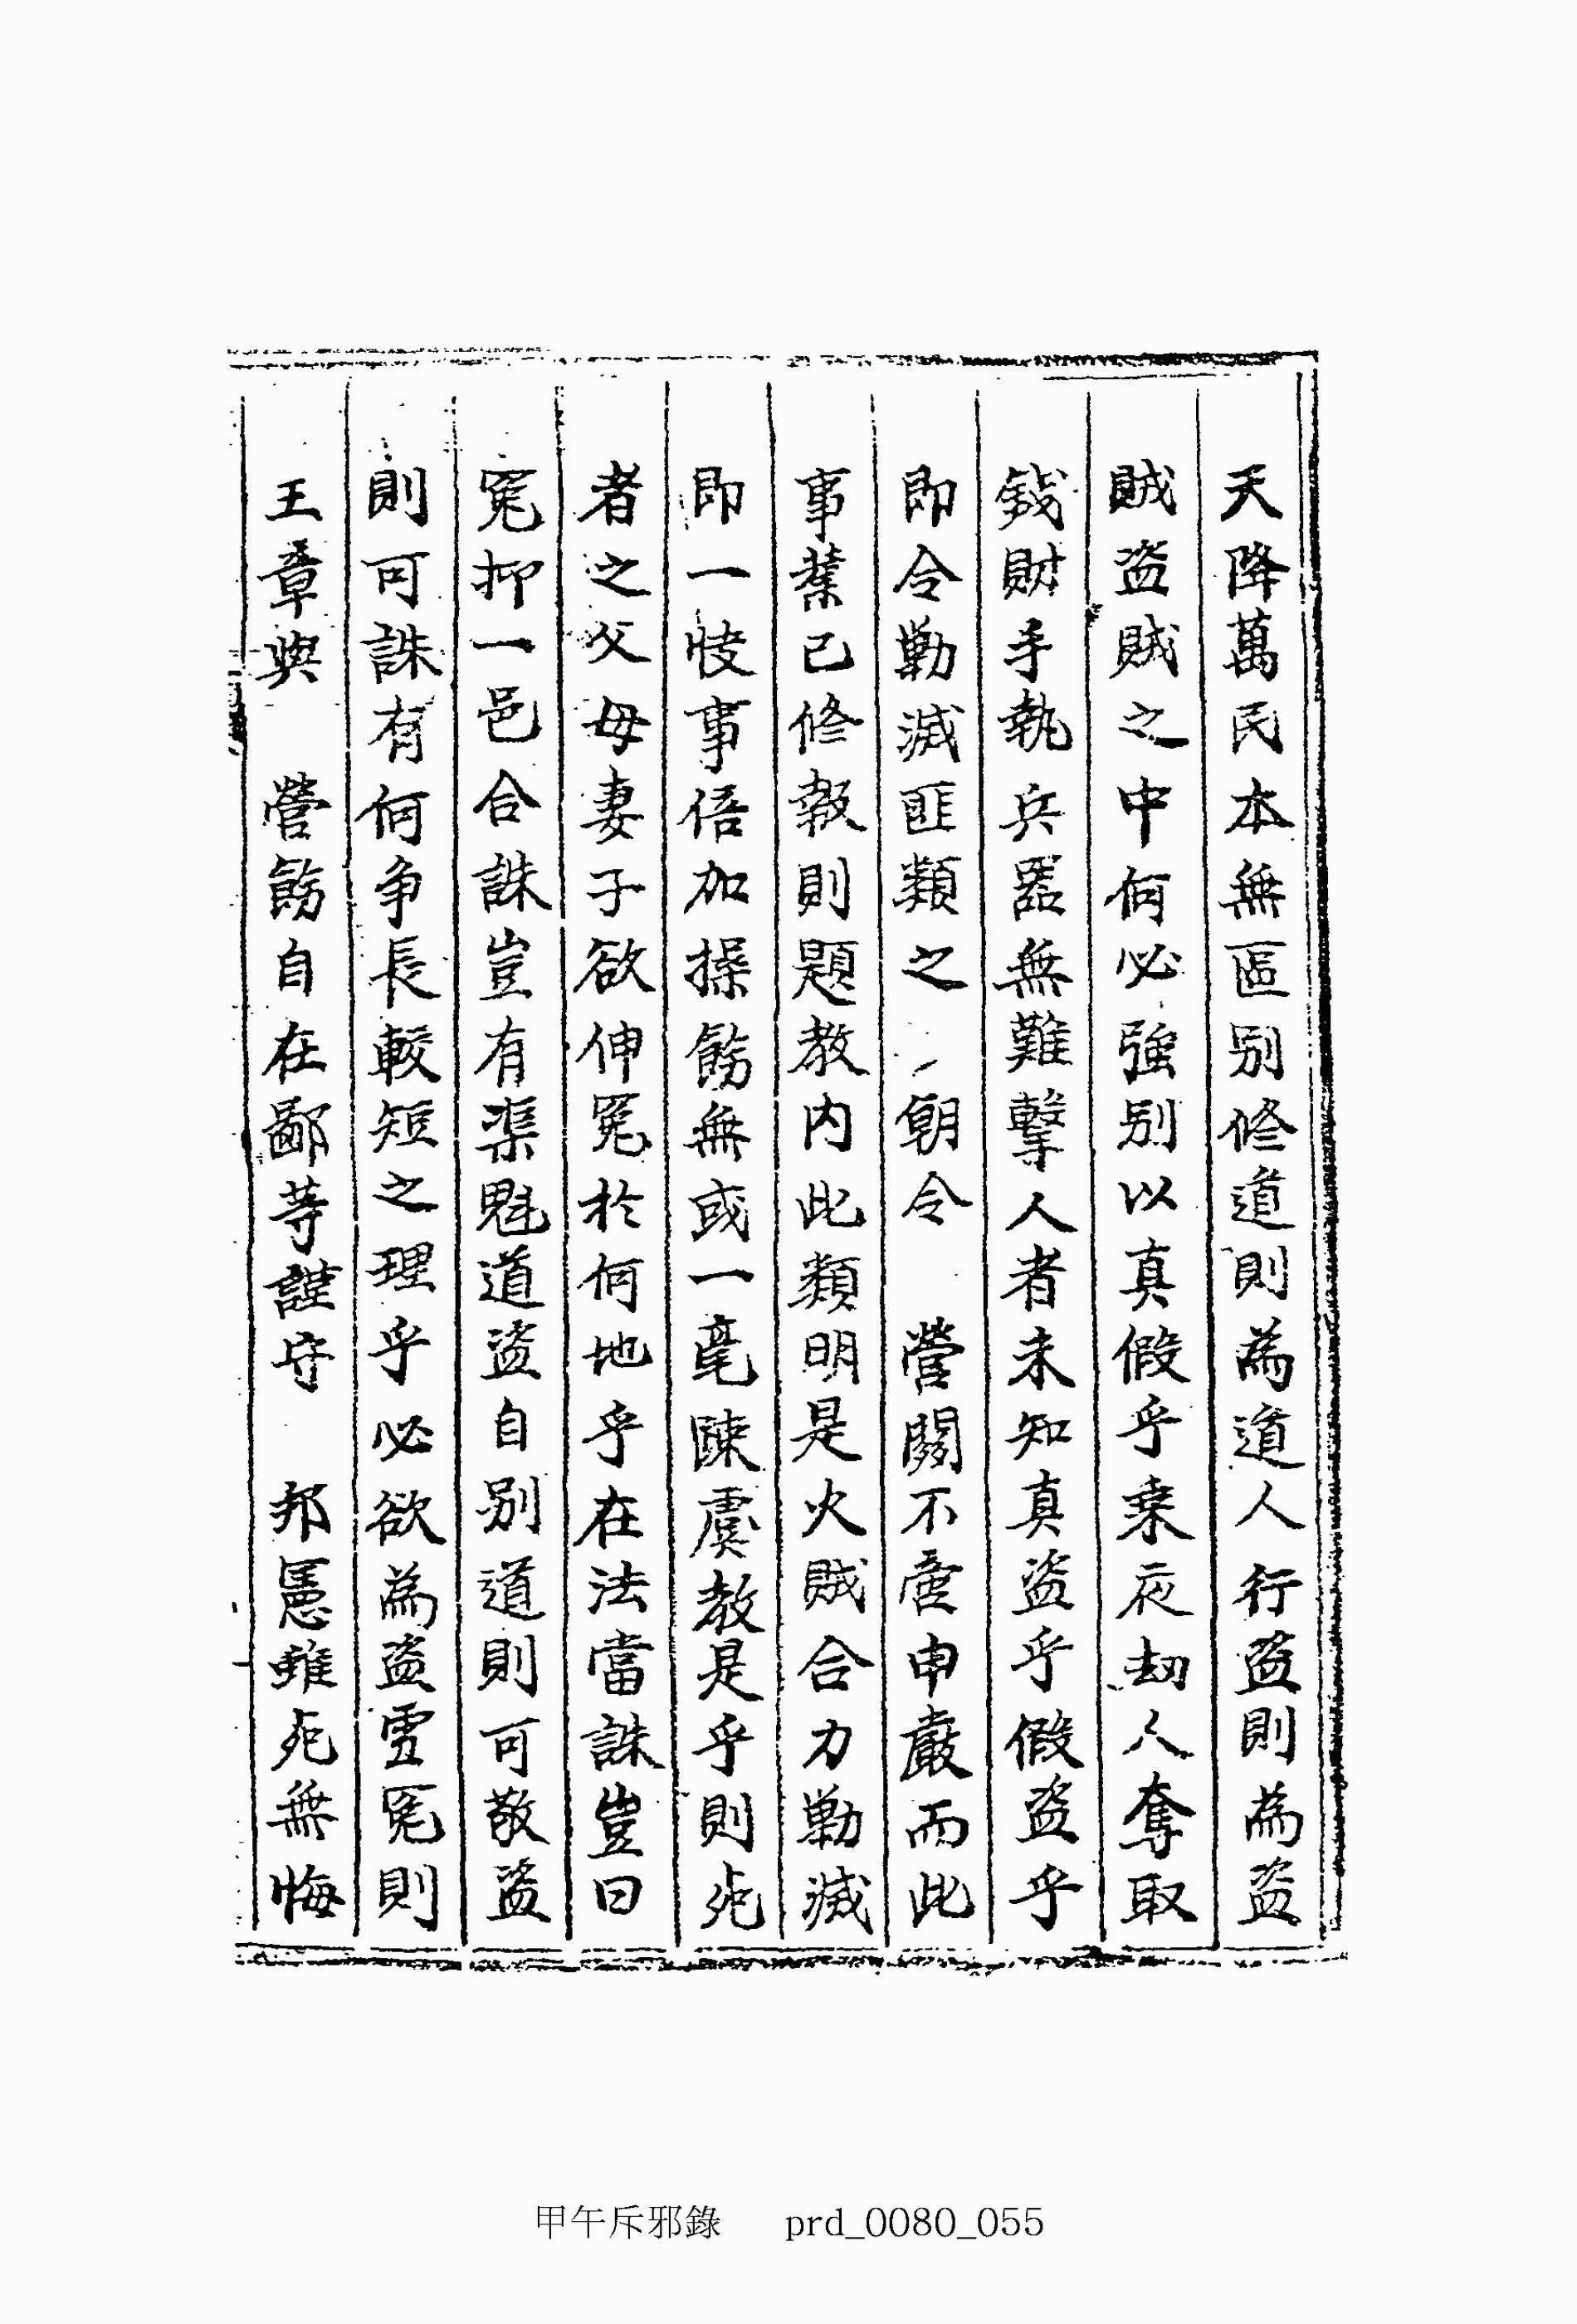 天降萬民本無區別修道則為道人行盜則為盜
賊盜賊之中何必強別以真假乎乘夜劫人奪取
錢財手執兵器無難擊人者未知真盜乎假盜乎
即令勦滅匪類之 朝令 營關不啻申嚴而此
事業已修報則題教內此類明是火賊合力勦滅
即一快事倍加操飭無或一毫陳虞教是乎則死
者之父母妻子欲伸冤於何地乎在法當誅豈曰
冤抑一邑合誅豈有渠魁道盜自別道則可敬盜
則可誅有何爭長較短之理乎必欲為盜雪冤則
王章與 營飭自在鄙等謹守 邦憲雖死無悔
甲午斥邪錄 prd_0080_055